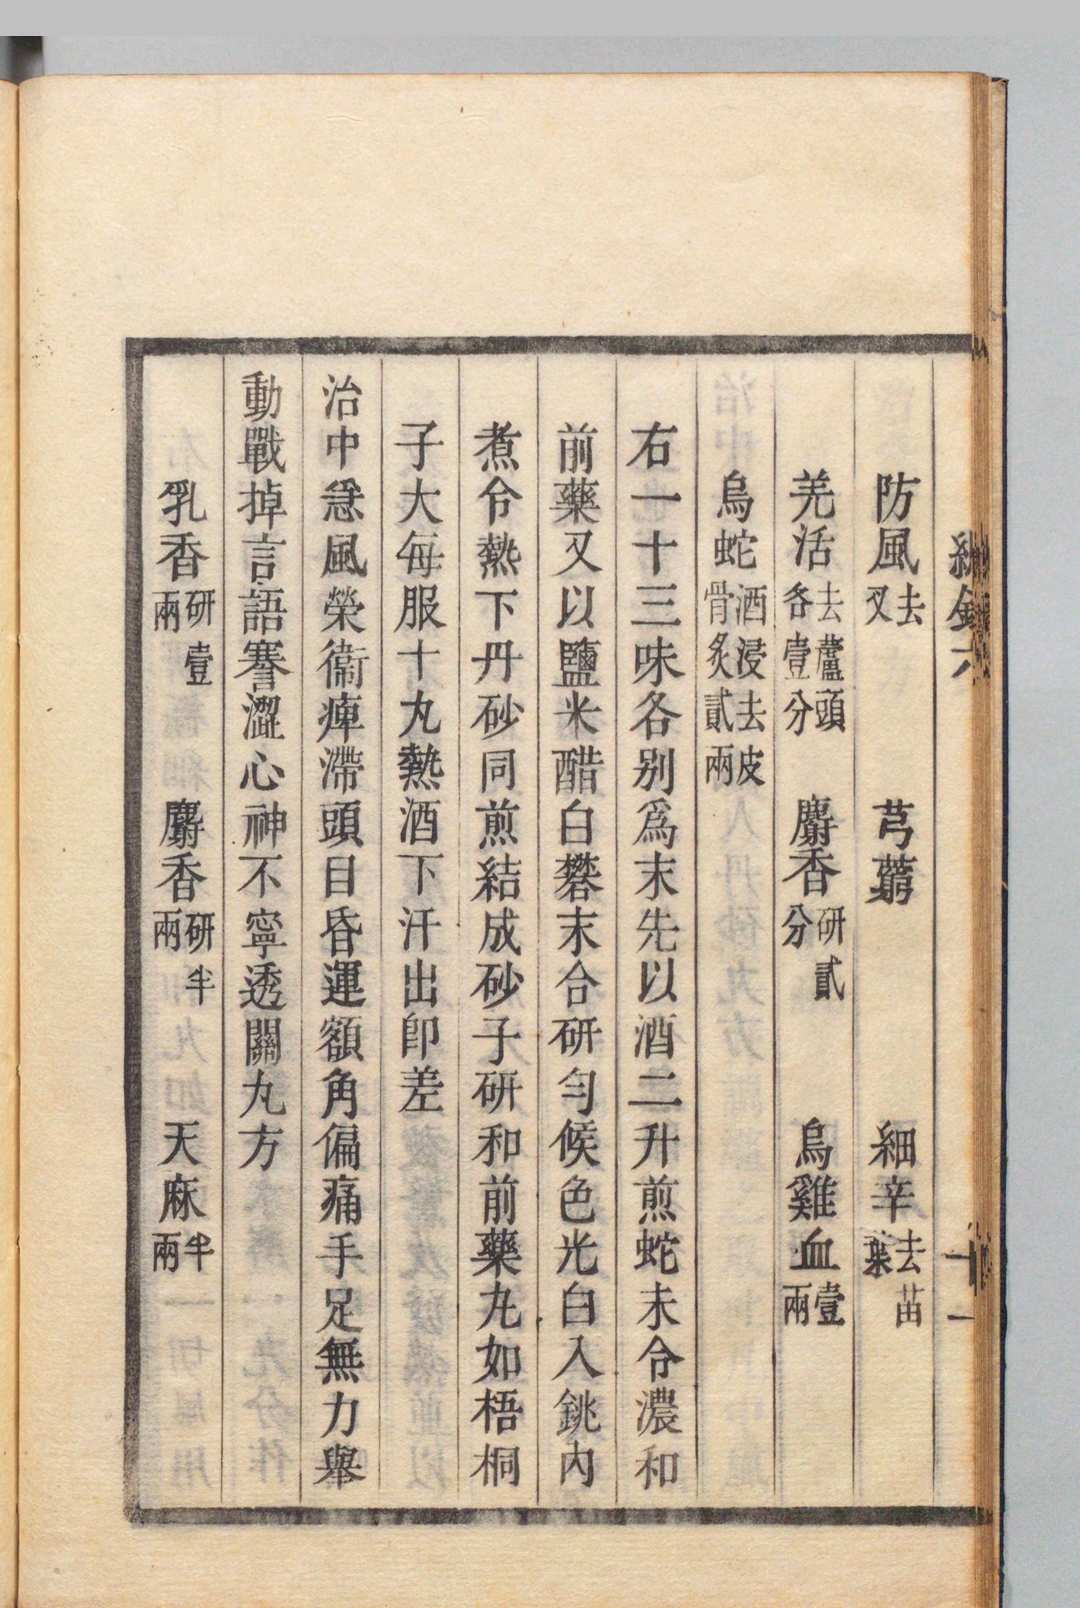 防風去叉　芎藭　細辛去苗葉
羌活去蘆頭各壹分　麝香研貳分　烏雞血壹兩
烏蛇酒浸去皮骨炙貳兩
右一十三味各别爲末先以酒二升煎蛇末令濃和
前藥又以鹽米醋白礬末合研勻候色光白入銚內
煮令熱下丹砂同煎結成砂子研和前藥丸如梧桐
子大每服十丸熱酒下汗出卽差
治中急風榮衞痺滯頭目昏運額角偏痛手足無力舉
動戰掉言語謇澀心神不寧透關丸方
乳香研壹兩　麝香研半兩　天麻半兩